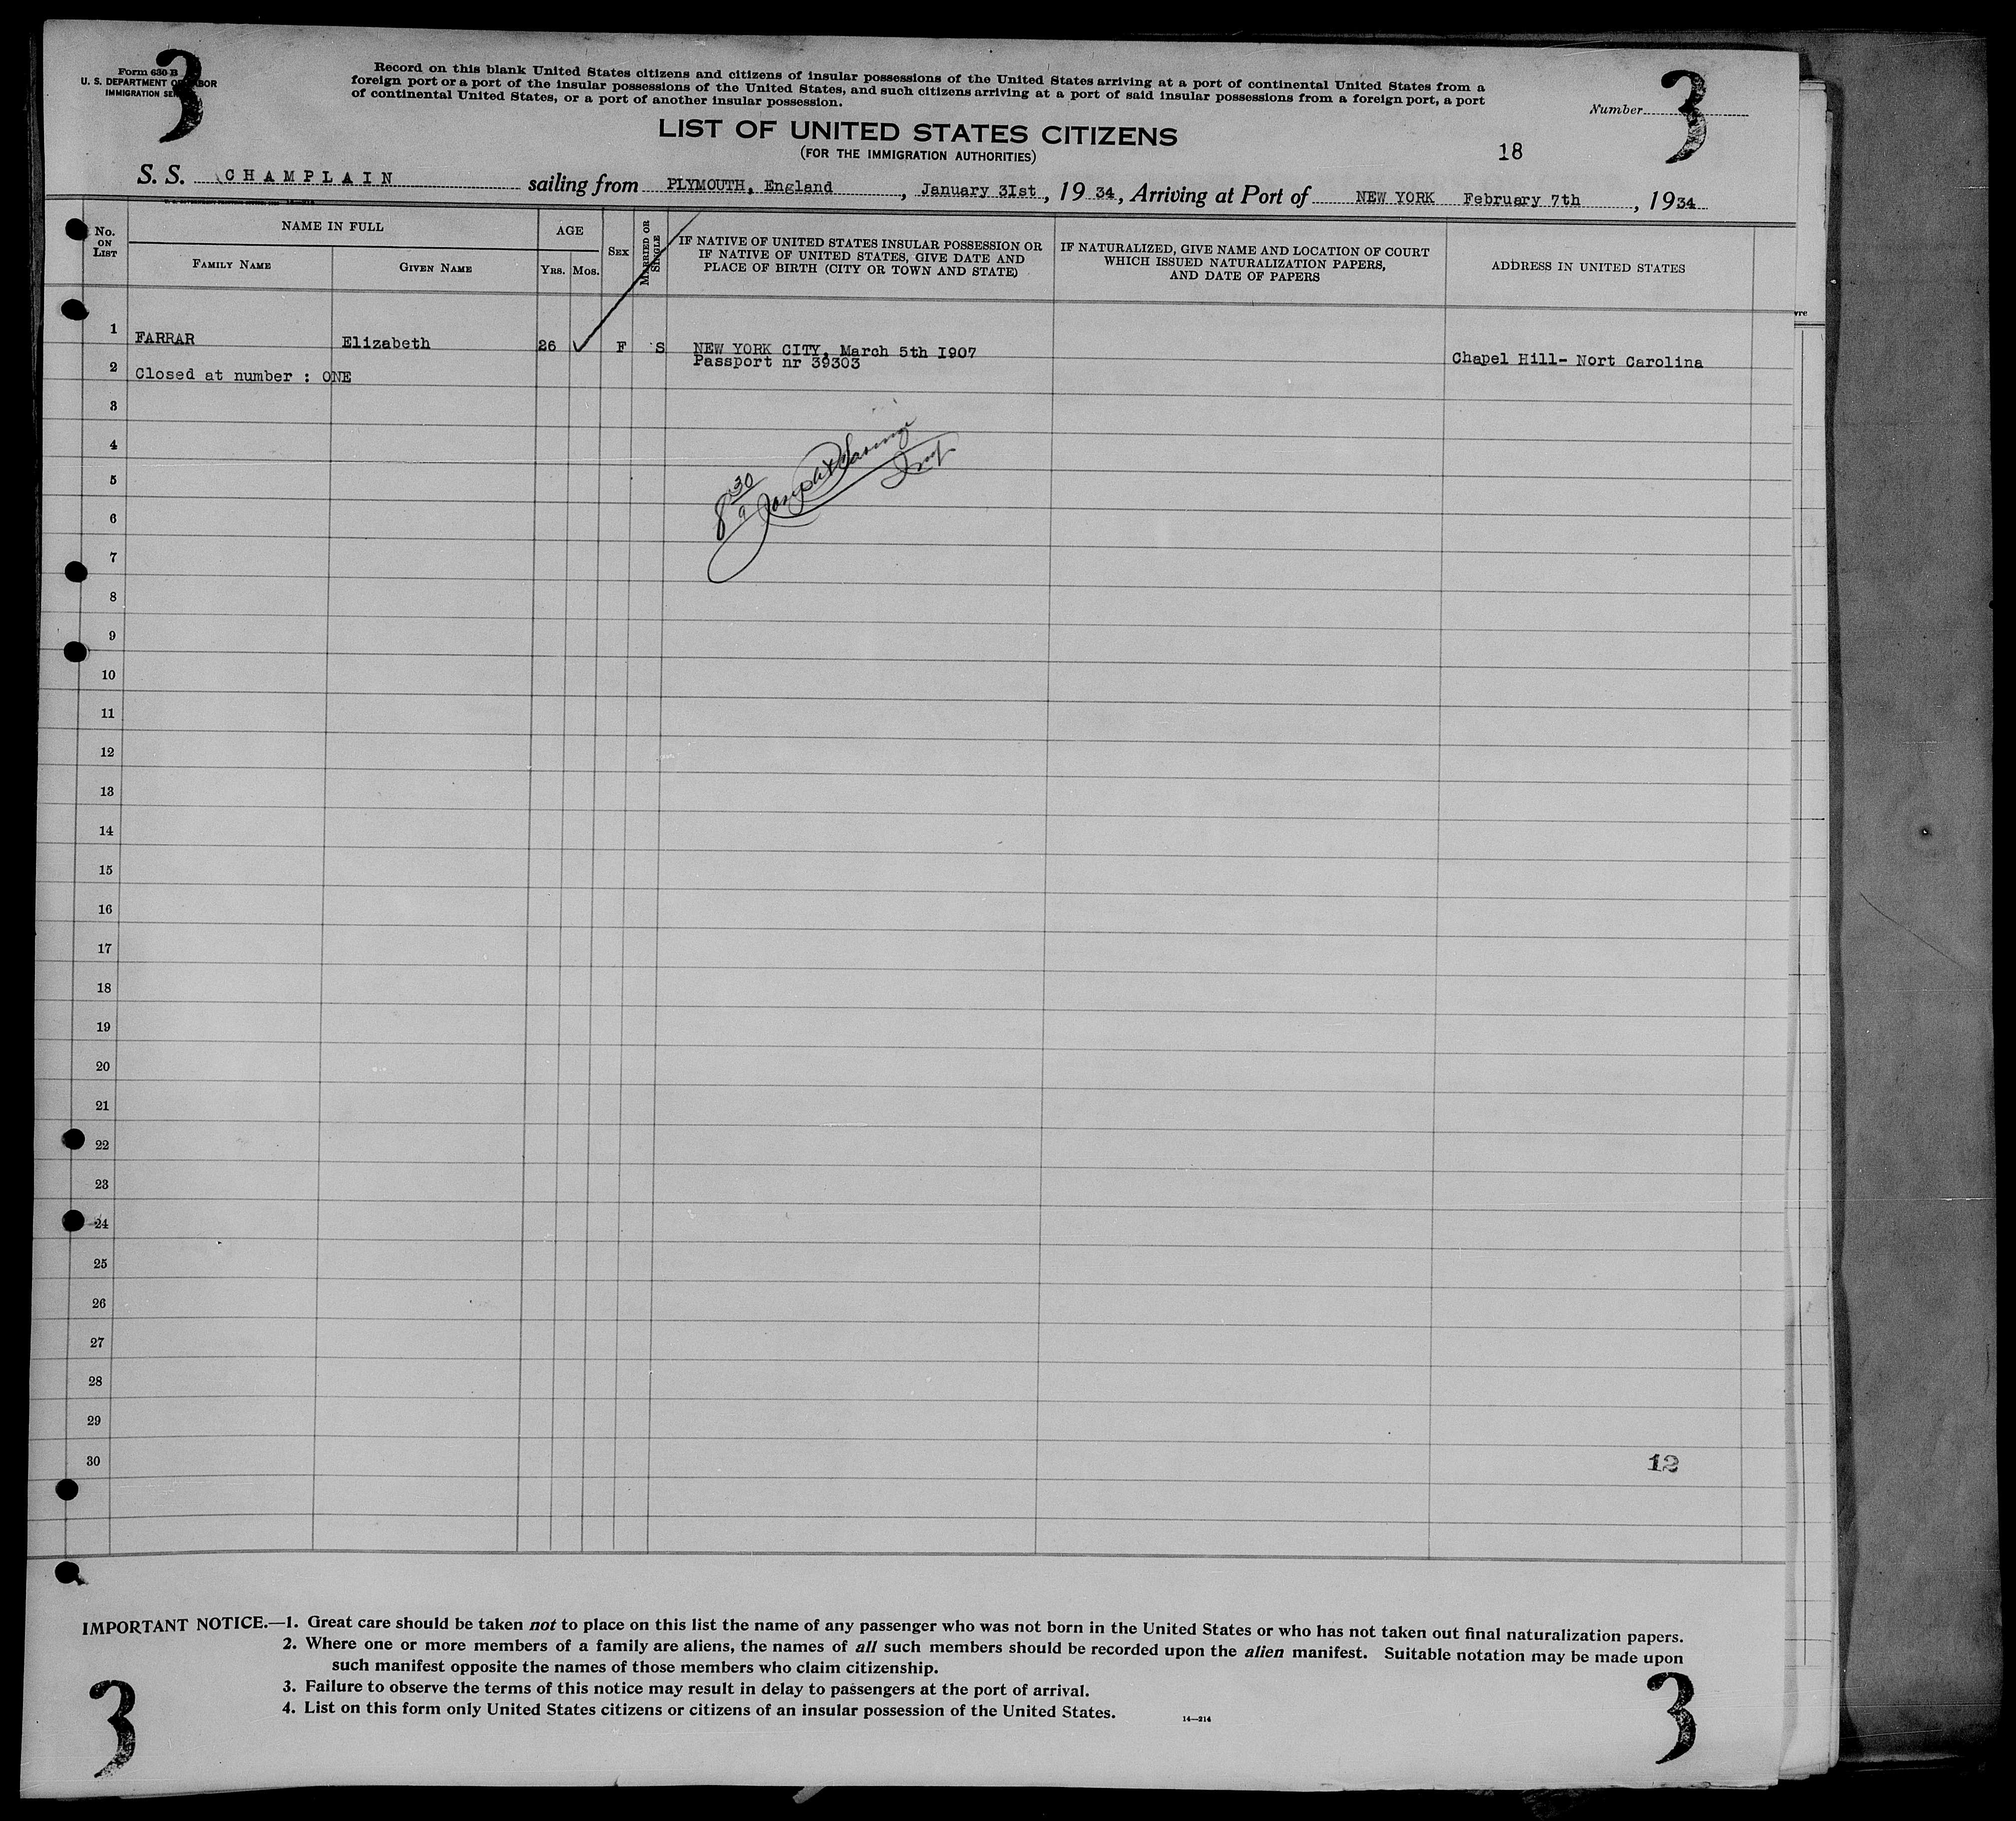 3
3
Form 630 B
U. S. DEPARTMENT OF LABOR
IMMIGRATION SE
Record on this blank United States citizens and citizens of insular possessions of the United States arriving at a port of continental United States from a
foreign port or a port of the insular possessions of the United States, and such citizens arriving at a port of said insular possessions from a foreign port, a port
of continental United States, or a port of another insular possession.
Number
LIST OF UNITED STATES CITIZENS
(FOR THE IMMIGRATION AUTHORITIES)
18
S. S. CHAMPLAIN sailing from PLYMOUTH, England, January 3Ist, 19 34, Arriving at Port of NEW YORK February 7th, 1934
No. ON LIST
NAME IN FULL
FAMILY NAME
GIVEN NAME
AGE
YRS. MOS.
SEX
MARRIED OR SINGLE
IF NATIVE OF UNITED STATES INSULAR POSSESSION OR
IF NATIVE OF UNITED STATES, GIVE DATE AND
PLACE OF BIRTH (CITY OR TOWN AND STATE)
IF NATURALIZED, GIVE NAME AND LOCATION OF COURT
WHICH ISSUED NATURALIZATION PAPERS,
AND DATE OF PAPERS
ADDRESS IN UNITED STATES
vre
1 FARRAR Elizabeth 26 F S NEW YORK CITY, March 5th I907
Passport nr 39303 Chapel Hill- Nort Carolina
2 Closed at number : ONE
3
4
5
8 30 a Joseph
6
7
8
9
10
11
12
13
14
15
16
17
18
19
20
21
22
23
24
25
26
27
28
29
30
12
IMPORTANT NOTICE.—1. Great care should be taken not to place on this list the name of any passenger who was not born in the United States or who has not taken out final naturalization papers.
2. Where one or more members of a family are aliens, the names of all such members should be recorded upon the alien manifest. Suitable notation may be made upon
such manifest opposite the names of those members who claim citizenship.
3. Failure to observe the terms of this notice may result in delay to passengers at the port of arrival.
4. List on this form only United States citizens or citizens of an insular possession of the United States.
14—214
3
3